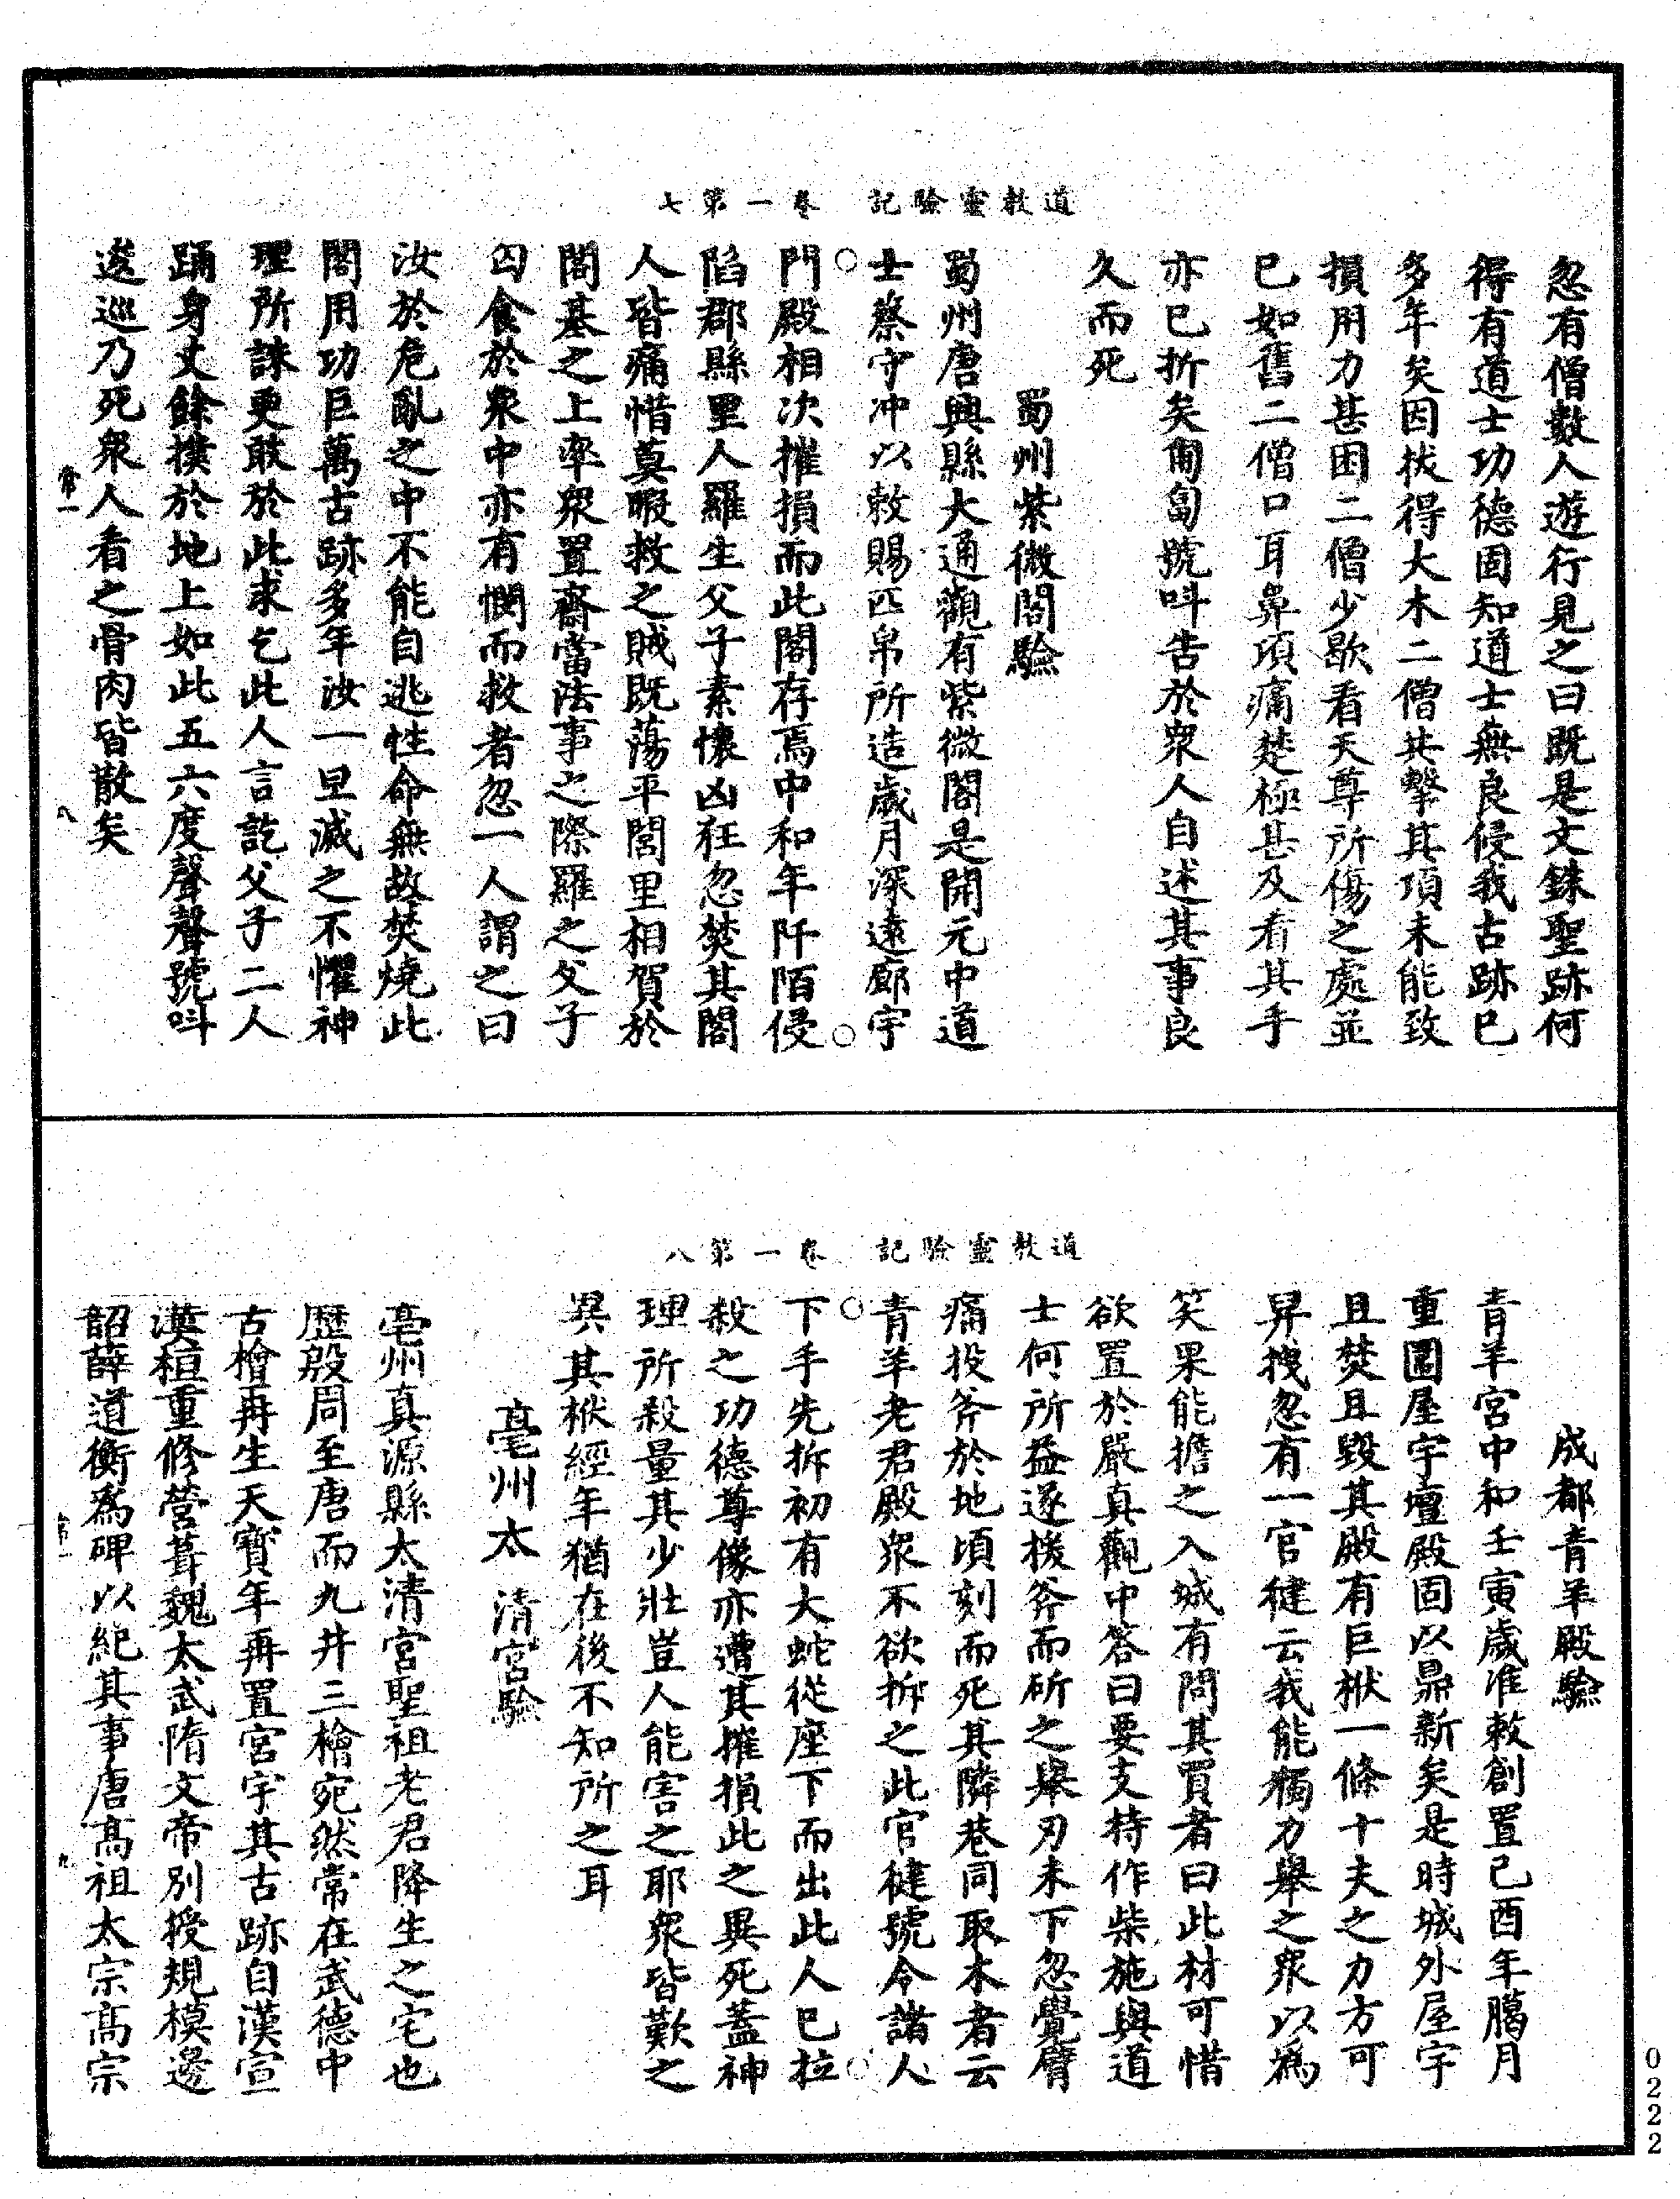 道教靈驗記　卷一第七
忽有僧數人遊行見之曰既是文銖聖跡何
得有道士功德固知道士無良侵我古跡已
多年矣因拔得大木二僧共擊其項未能致
損用力甚困二僧少歇看天尊所傷之處並
已如舊二僧口耳鼻項痛楚極甚及看其手
亦已折矣匍匐號叫告於衆人自述其事良
久而死
蜀州紫微閣驗
蜀州唐興縣大通觀有紫微閣是開元中道
士蔡守冲以敕賜匹帛所造歲月深遠廊宇
門殿相次摧損而此閣存焉中和年阡陌侵
陷郡縣里人羅生父子素懷凶狂忽焚其閣
人皆痛惜莫暇救之賊既蕩平閭里相賀於
閣基之上率衆置齋當法事之際羅之父子
囚食於衆中亦有憫而救者忽一人謂之曰
汝於危亂之中不能自逃性命無故焚燒此
閣用功巨萬古跡多年汝一旦滅之不懼神
理所誅更敢於此求乞此人言訖父子二人
踊身丈餘撲於地上如此五六度聲聲號叫
逡巡乃死衆人看之骨肉皆散矣
常一　八
道教靈驗記　卷一第八
成都青羊殿驗
青羊宮中和壬寅歲准敕創置己酉年臈月
重圍屋宇壇殿固以鼎新矣是時城外屋宇
且焚且毀其殿有巨栿一條十夫之力方可
舁拽忽有一官健云我能獨力舉之衆以爲
笑果能擔之入城有問其買者曰此材可惜
欲置於嚴真觀中答曰要支持作柴施與道
士何所益遂援斧而斫之舉刃未下忽覺臂
痛投斧於地頃刻而死其隣巷同取木者云
青羊老君殿衆不欲拆之此官健號令諸人
下手先拆初有大蛇從座下而出此人已拉
殺之功德尊像亦遭其摧損此之異死蓋神
理所殺量其少壯豈人能害之耶衆皆歎之
異其栿經年猶在後不知所之耳
亳州太清宮驗
亳州真源縣太清宮聖祖老君降生之宅也
歷殷周至唐而九井三檜宛然常在武德中
古檜再生天寶年再置宮宇其古跡自漢宣
漢桓重修營葺魏太武隋文帝別授規模邊
韶薛道衡爲碑以紀其事唐高祖太宗高宗
常一　九
0222